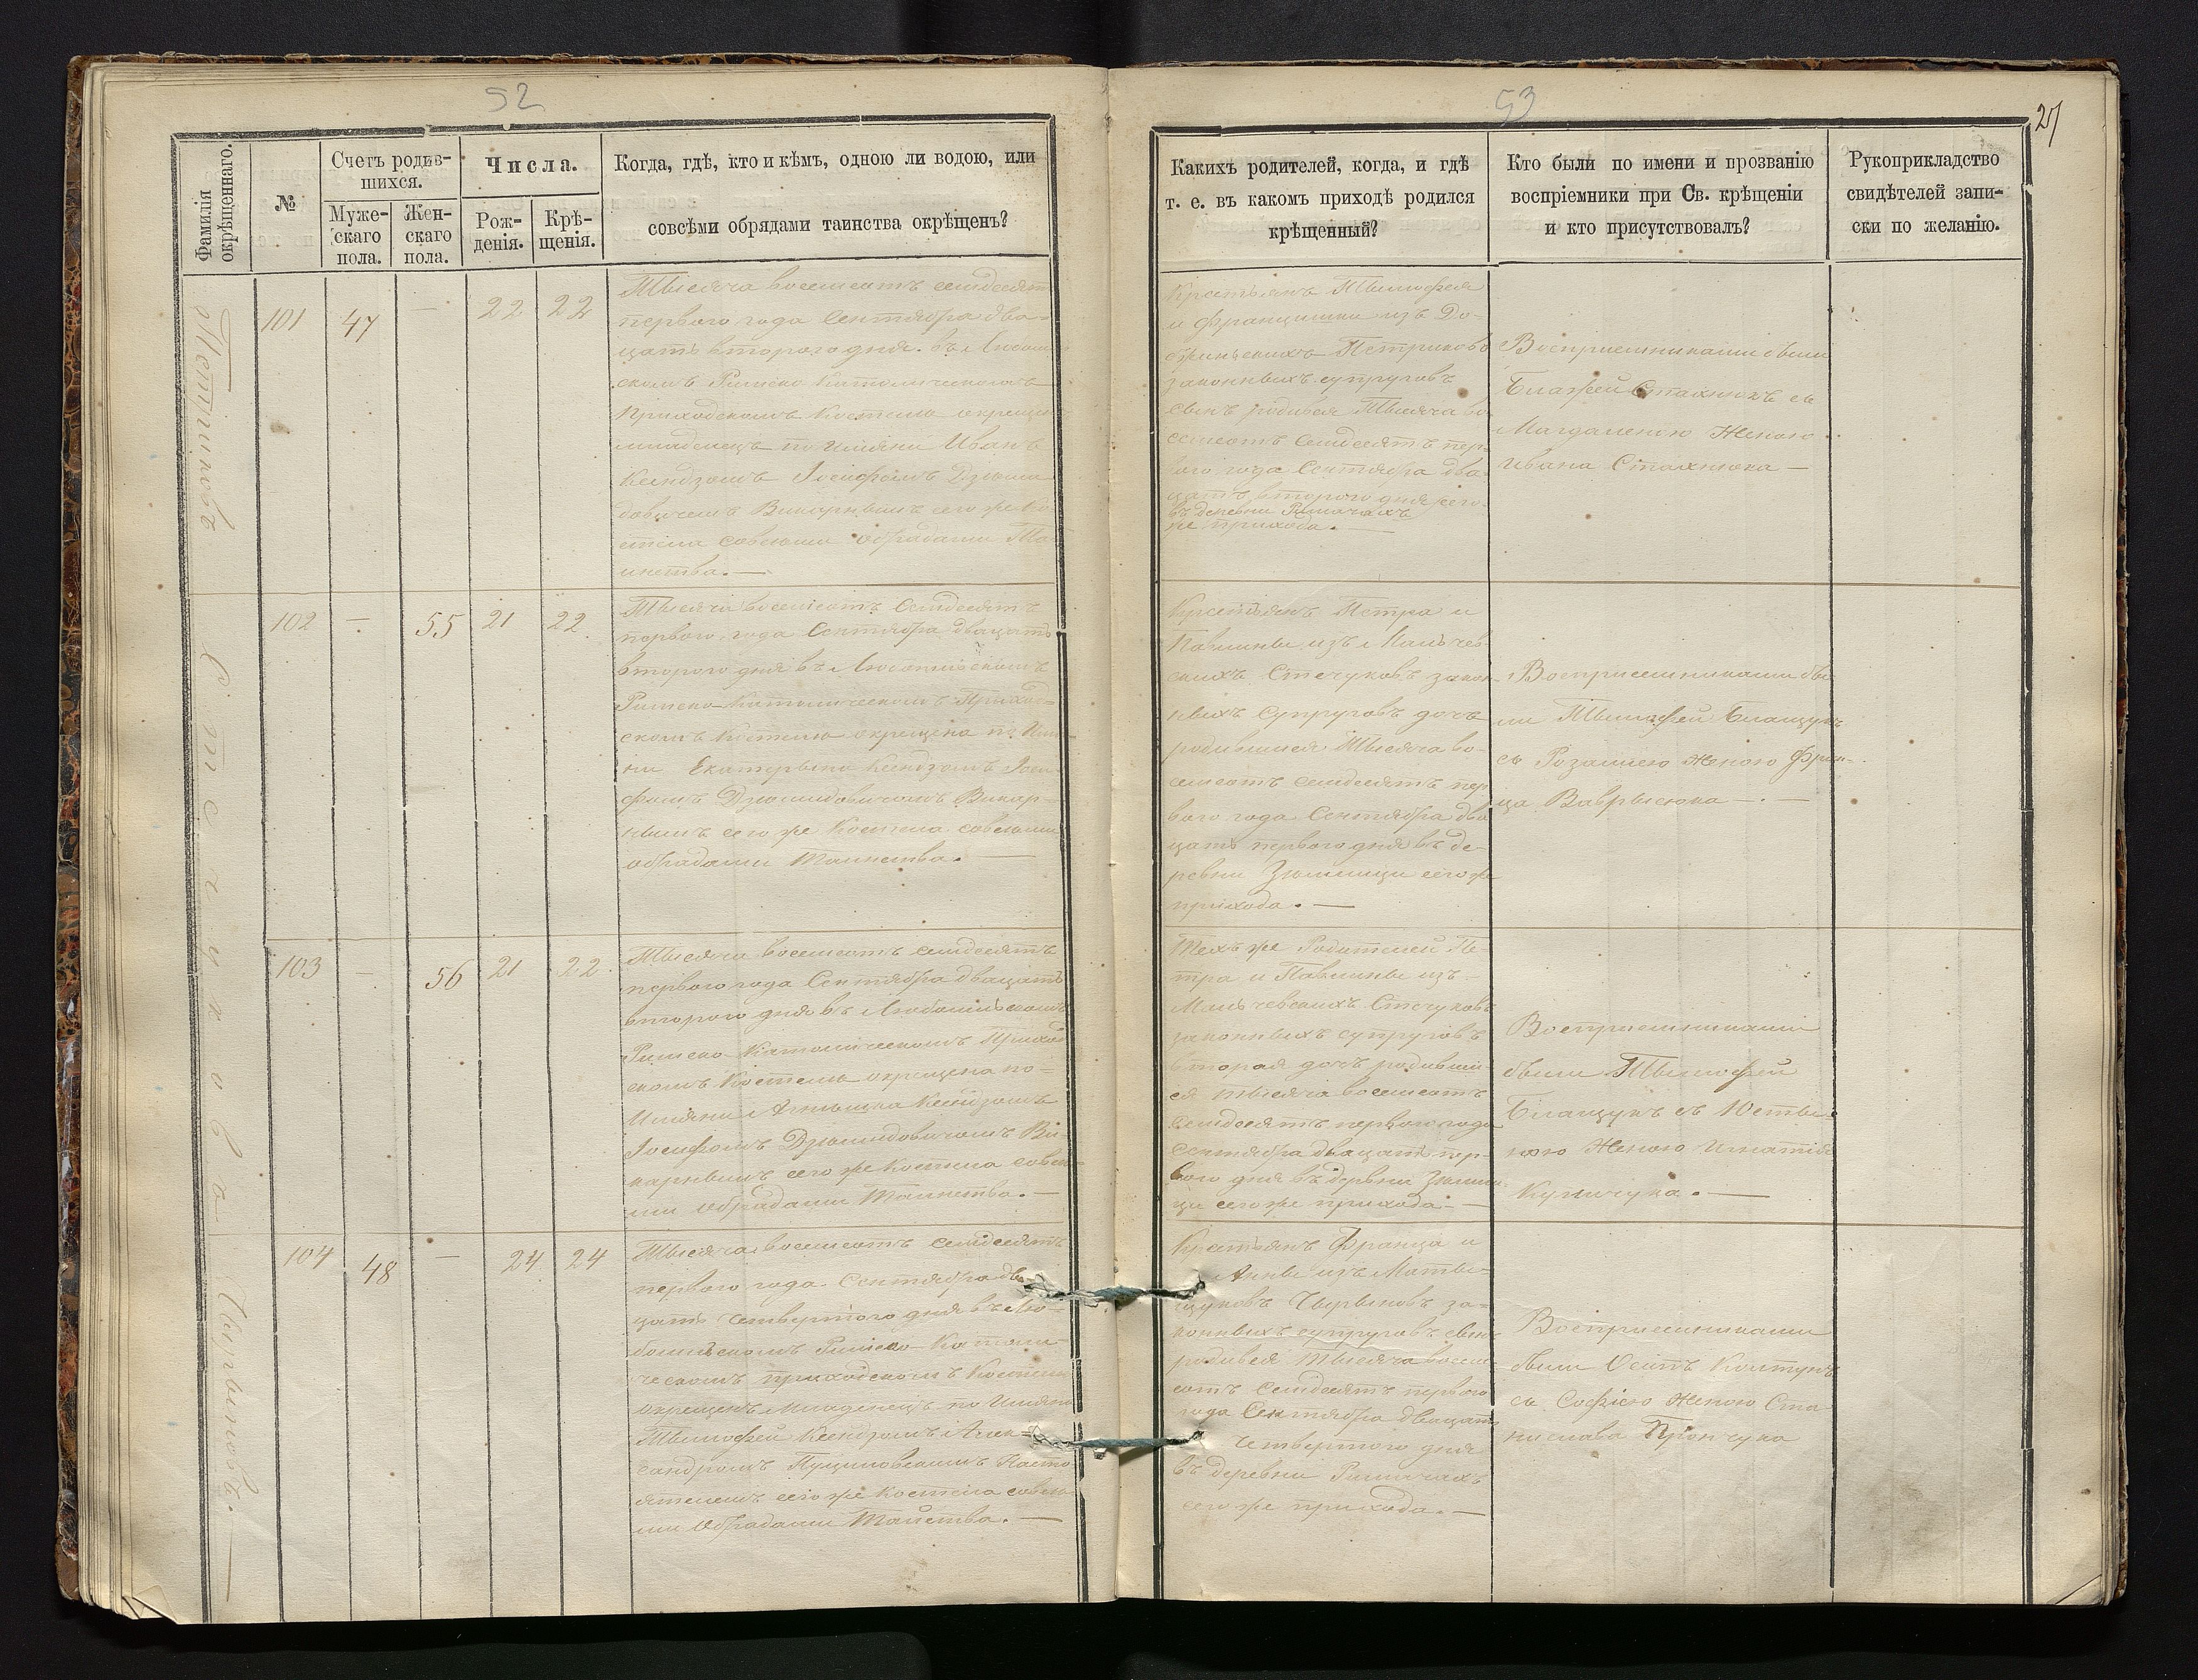 52
Фамилія окрѣщеннаго.
№
Счетъ родив-
шихся.
Муже-
скаго
пола.
Жен-
скаго
пола.
Числа.
Рож-
денія.
Крѣ-
щенія.
Когда, гдѣ, кто и кѣмъ, одною ли водою, или
совсѣми обрядами таинства окрѣщенъ?
Петриковъ
101
47
—
22
22
Тысяча восемсотъ семдесятъ
первого года Сентября два-
цать второго дня въ
скомъ Римско Католическомъ
Приходскомъ Костелѣ окрещен
младенецъ по Имяни Иванъ
Ксендзомъ Іосифомъ
Викарнымъ сего же Ко-
стела совсеми обрядами Та-
инства. —
Стечукова
102
—
55
21
22
Тысяча восемсотъ Семдесятъ
первого года Сентября двацать
второго дня въ Любомльскомъ
Римско-Католическомъ Приход-
скомъ Костелѣ окрещена по Имя-
ни Екатерына Ксендзомъ Іоси-
фомъ Викар-
нымъ сего же Костела совсеми
обрядами Таинства. —
103
—
56
21
22
Тысяча восемсотъ семдесятъ
первого года Сентября двацать
второго дня въ Любомльскомъ
Римско-Католическомъ Приход
скомъ Костелѣ окрещена по-
Имяни Ксендзомъ
Іосифомъ Ви-
карнымъ сего же Костела совсе-
ми обрядами Таинства. —
Чырыновъ. —
104
48
—
24
24
Тысяча восемсотъ семдесятъ
первого года Сентября два-
цать четвертого дня въ Лю-
бомльскомъ Римско-Католи-
ческомъ приходскомъ Костелѣ
окрещенъ младенецъ по Имяни
Тымофей Ксендзомъ Алек-
сандромъ Насто-
ятелемъ сего же Костела совсе-
ми обрядами Таинства. —
53
27
Какихъ родителей, когда, и гдѣ
т. е. въ какомъ приходѣ родился
крѣщенный?
Кто были по имени и прозванію
воспріемники при Св. крѣщеніи
и кто присутствовалъ?
Рукоприкладство
свидѣтелей запи-
ски по желанію.
Крестьянъ Тымофея
и Францишки изъ До-
Петриковъ
законныхъ супруговъ
сынъ родился Тысяча во-
семсотъ Семдесятъ пер-
вого года Сентября два-
цать второго дня сего-
въ деревни Римачахъ
же прихода. —
Восприемниками были
Блажей Стахнюкъ съ
Магдаленою Женою
Ивана Стахнюка —
Крестьянъ Петра и
Павлины изъ Мальчев-
скихъ Стечуковъ закон-
ныхъ Супруговъ дочь
родившися Тысяча во-
семсотъ семдесятъ пер
вого года Сентября два
цать первого дня въ де-
ревни сего же
прихода. —
Восприемниками бы-
ли Тымофей Блащукъ
съ Розалиею Женою Фран-
ца Ваврысюка — . —
Техъ же Родителей Пе-
тра и Павлины изъ-
Мальчевскихъ Стечуковъ
законныхъ супруговъ
вторая дочь родивши-
ся тысяча восемсотъ
Семдесятъ первого года
Сентября двацать пер-
вого дня въ деревни
сего же прихода. —
Восприемниками
были Тымофей
Блащукъ съ Юсты-
ною Женою Игнатія
. —
Крестьянъ Франца и
Анны изъ Матве-
Чырыновъ за-
конныхъ супруговъ сынъ
родился Тысяча восем-
сотъ Семдесятъ первого
года Сентября двацать
Четвертого дня
въ деревни Римачахъ
сего же прихода. —
Восприемниками
были Осипъ
съ Софіею Женою Ста-
нислава